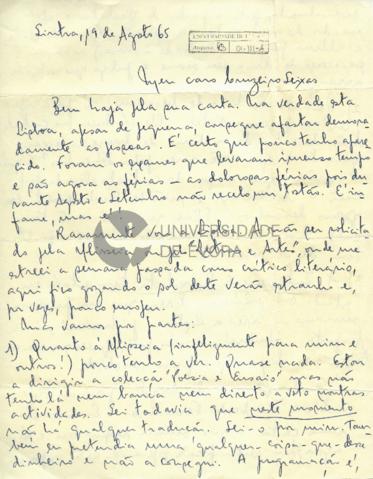 Sintra, 19 de Agosto 65
UNIVERSIDADE DE
Meu caro Cruzeiro Seixas
Bem haja pela sua carta. Na verdade esta
Lisboa, apesar de pequena, consegue afastar demora-
damente as pessoas. É certo que pouco tenho apare-
cido. Foram os exames que levaram imenso tempo
e são agora as férias — as dolorosas férias pois du-
rante Agosto e Setembro não recebo um tostão. É in-
fame, mas é!
Raramente vou a Lisboa. A não ser solicita-
do pela Ulisseia ou Letras e Artes, onde me
estreei a semana passada como crítico literário,
aqui fico gozando o sol deste verão estranho e,
por vezes, pouco
UNIVERSIDADE
DE ÉVORA
Mas vamos por partes:
1) Quanto à Ulisseia (infelizmente para mim e
outros!) pouco tenho a ver. Quase nada. Estou
a dirigir a colecção "Poesia e Ensaio" mas não
tenho lá nem banca nem direito a voto noutras
actividades. Sei todavia que neste momento
não há qualquer tradução. Sei-o por mim. Tam-
bém eu pretendia uma qualquer-coisa-que-desse
dinheiro e não a consegui. A programação é,